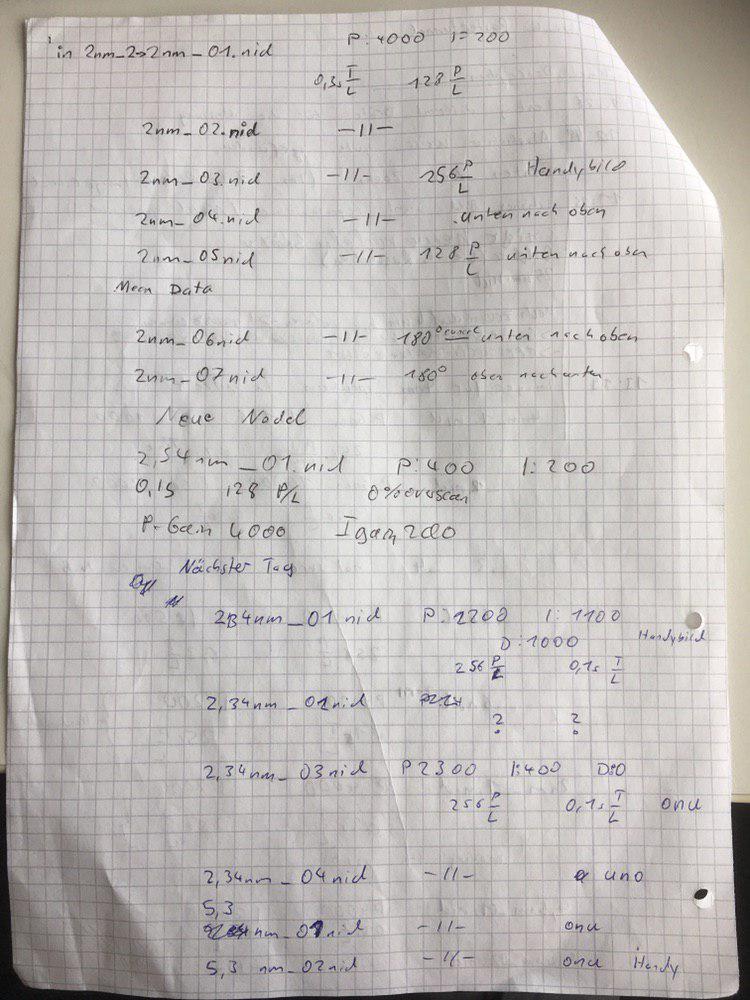 in 2nm_2>2nm_01.nid P: 4000 I=200
0,3s T/L 128 P/L
2nm_02.nid -11-
2nm_03.nid -11- 256 P/L Handybild
2nm_04.nid -11- unten nach oben
2nm_05nid -11- 128 P/L unten nach oben
Mean Data
2nm_06nid -11- 180° unten nach oben
2nm_07nid -11- 180° oben nach unten
Neue Nadel
2,54nm_01.nid P:400 I:200
0,1s 128 P/L 0% overscan
P-Gain 4000 Igain 200
Nächster Tag
234nm_01nid P:2200 I: 1100
D:1000 Handybild
256 P/L 0,1s T/L
2,34nm_02nid
? ?
2,34nm_03nid P2300 I:400 D:0
256 P/L 0,1s T/L onu
2,34nm_04nid -11- uno
5,3
nm_01nid -11- onu
5,3 nm_02nid -11- onu Handy